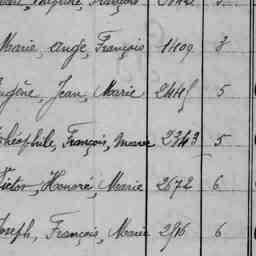 Marie, Ange, François 1409 8
Eugène, Jean, Marie 2445 5
Théophile, François, Marie 2343 5
Victor, Honoré, Marie 2672 6
Joseph, François, Marie 2916 6